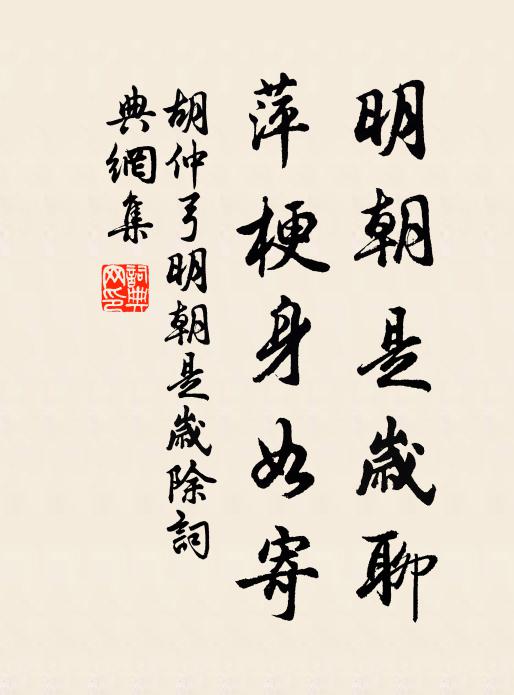 明朝是歲聊
萍梗身如寄
胡仲弓明朝是歲除詞
典網集
詞典網印